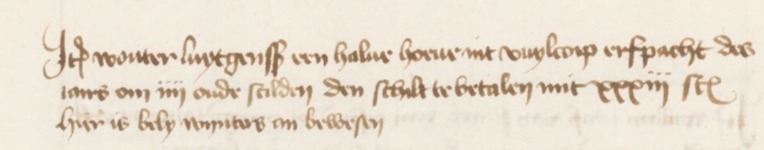 Itē wouter luytgenss een halue hoeue int vuylcop erfpacht des
iairs om iiii oude scilden den schilt te betalen mit xxxiii st
hier is bely wouters an bewesen